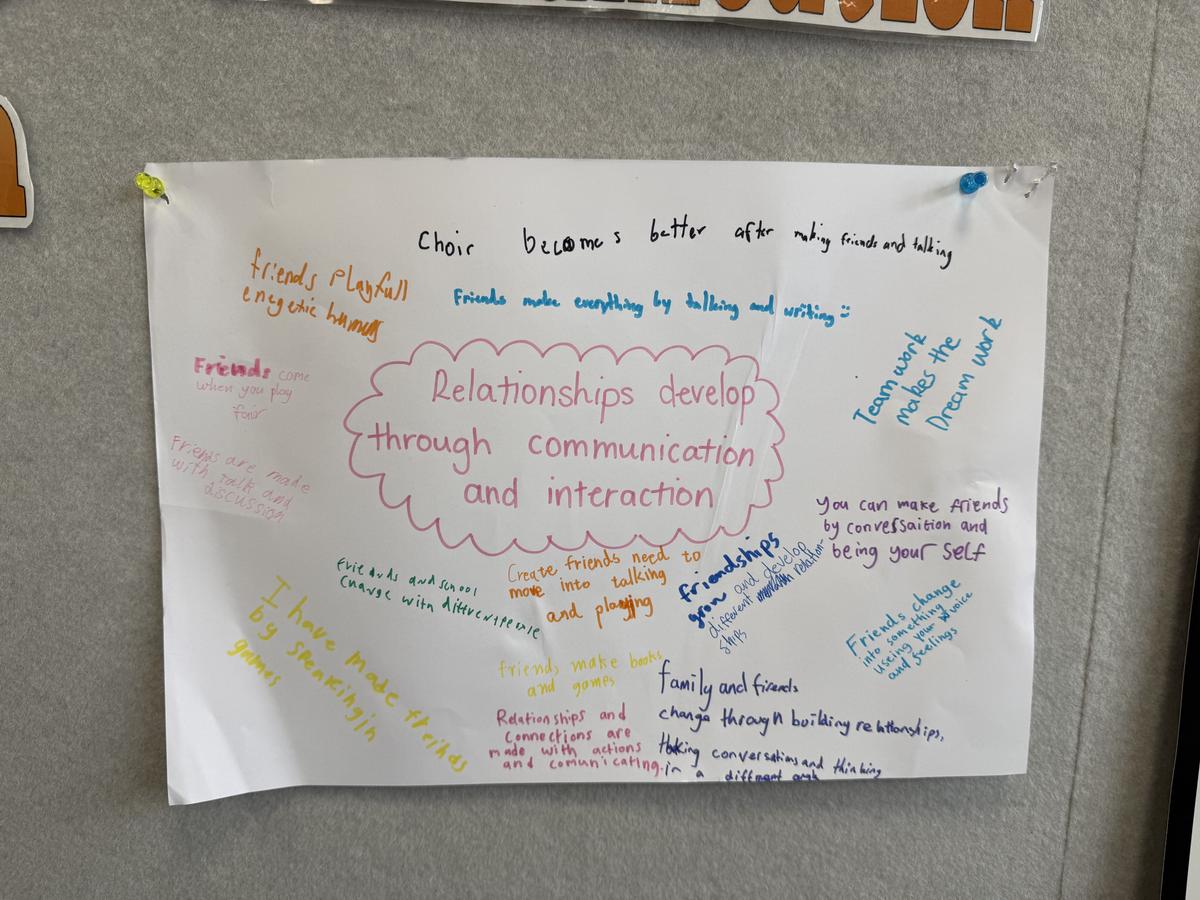 Choir becomes better after making friends and talking
friends playfull
enegetic humns
Friends make everything by talking and writing :)
Teamwork
makes the
Dream work
Friends come
when you play
fair
Relationships develop
through communication
and interaction
Friends are made
with talk and
discussion
You can make friends
by conversaition and
being your self
Friends and school
change with different people
Create friends need to
move into talking
and playing
friendships
grow and develop
different relation-
ships
Friends change
into something
useing your voice
and feelings
I have made freinds
by speaking in
games
friends make books
and games
family and friends
change through building relationships,
conversations and thinking
in a different
Relationships and
connections are
made with actions
and comunicating.